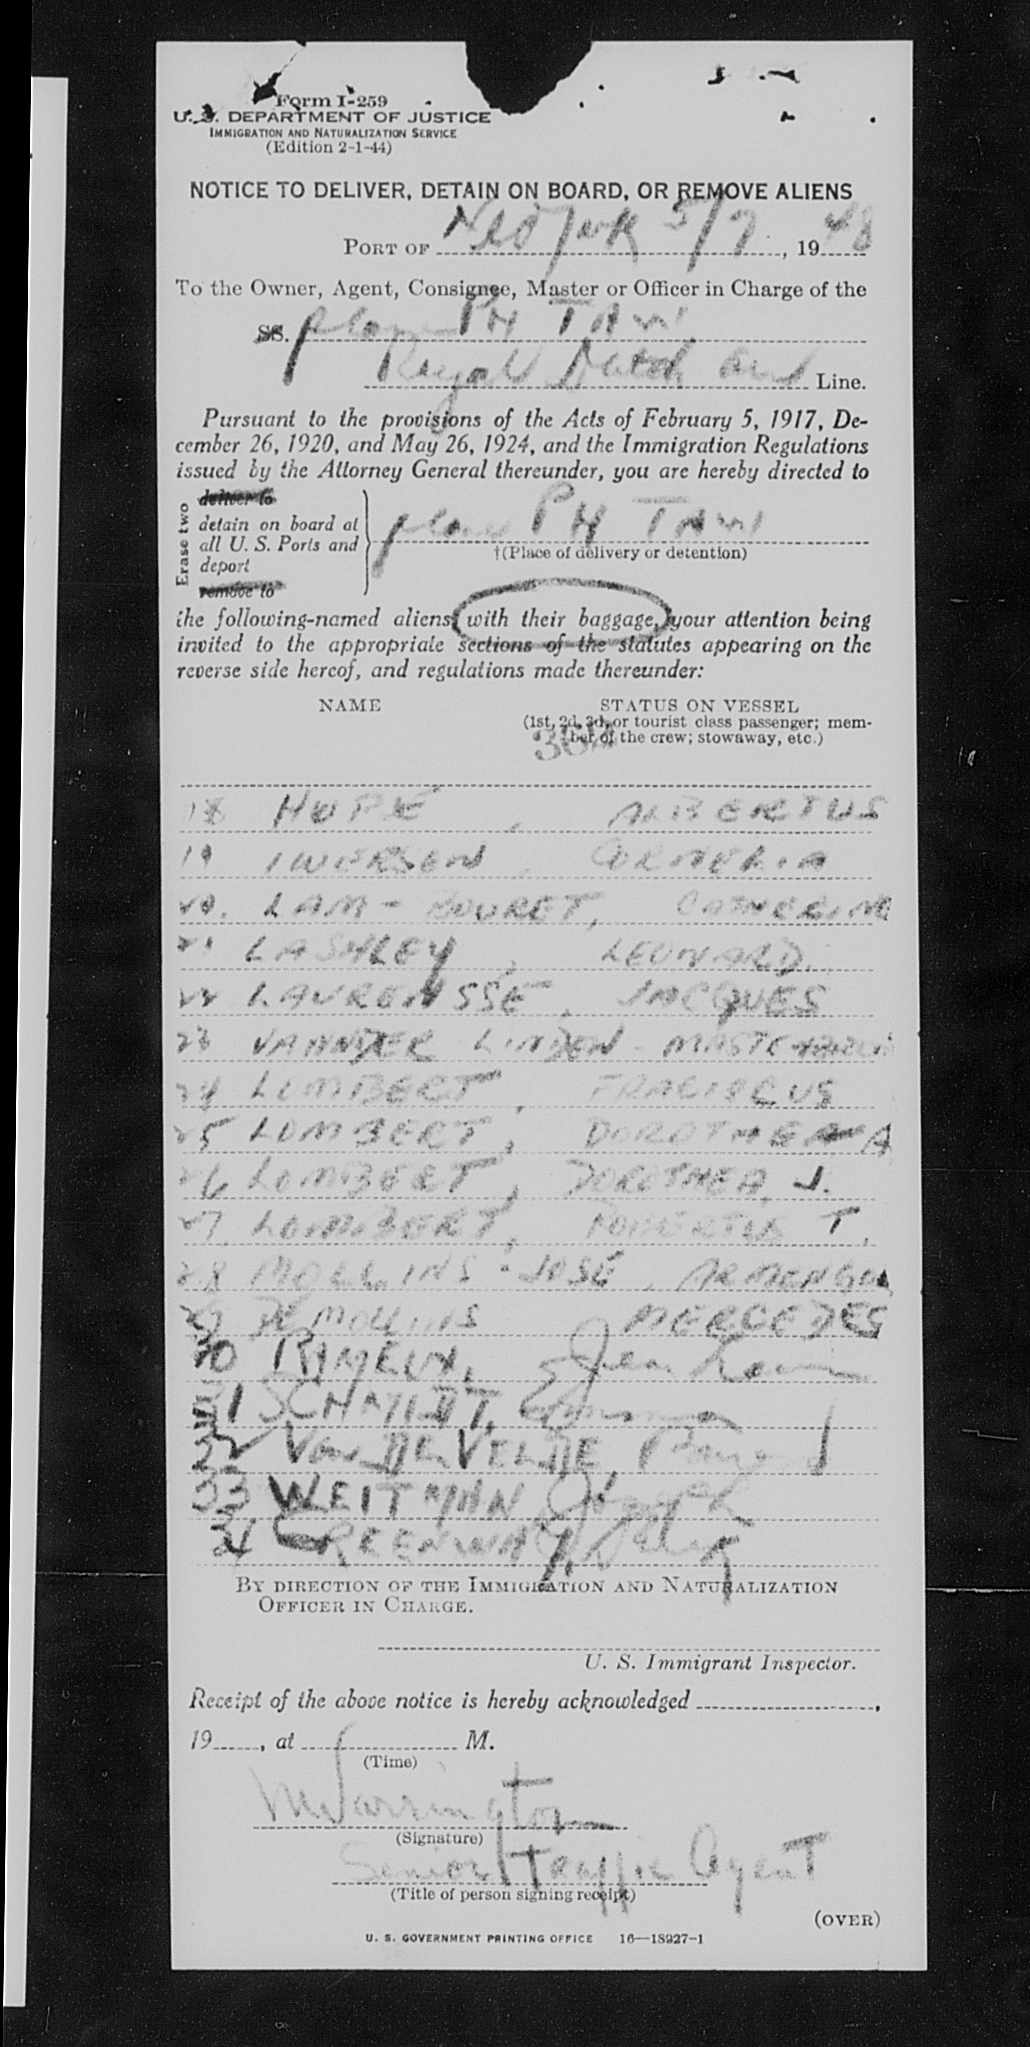 Form I-259
U. S. DEPARTMENT OF JUSTICE
IMMIGRATION AND NATURALIZATION SERVICE
(Edition 2-1-44)
NOTICE TO DELIVER, DETAIN ON BOARD, OR REMOVE ALIENS
PORT OF New York 5/7, 1948
To the Owner, Agent, Consignee, Master or Officer in Charge of the
SS. plane PH TAW
Royal Dutch Line.
Pursuant to the provisions of the Acts of February 5, 1917, De-
cember 26, 1920, and May 26, 1924, and the Immigration Regulations
issued by the Attorney General thereunder, you are hereby directed to
Erase two
deliver to
detain on board at
all U. S. Ports and
deport
remove to
plane PH TAW
†(Place of delivery or detention)
the following-named aliens, with their baggage, your attention being
invited to the appropriate sections of the statutes appearing on the
reverse side hereof, and regulations made thereunder:
NAME STATUS ON VESSEL
(1st, 2d, 3d, or tourist class passenger; mem-
ber of the crew; stowaway, etc.)
18 HUPE, ALBERTUS
19 IWERSEN, CORNELIA
20. LAM-BOURET, CATHERINE
21 LASHLEY, LEONARD
22 LAURENSSE, JACQUES
23 LINDEN -
24 LOMBERT, FRACISCUS
25 LOMBERT, DOROTHEA A
26 LOMBERT, DOROTHEA. J.
27. LOMBERT, T.
28 MOLLINS - JOSE,
29 DE MOLLINS MERCEDES
30 Jean
31 SCHMIDT, Emma
32 Van der VELDE,
33 WEITMAN,
34 GREENWAY,
BY DIRECTION OF THE IMMIGRATION AND NATURALIZATION
OFFICER IN CHARGE.
U. S. Immigrant Inspector.
Receipt of the above notice is hereby acknowledged
19, at M.
(Time)
(Signature)
Senior Traffic Agent
(Title of person signing receipt)
(OVER)
U. S. GOVERNMENT PRINTING OFFICE 16—18927-1